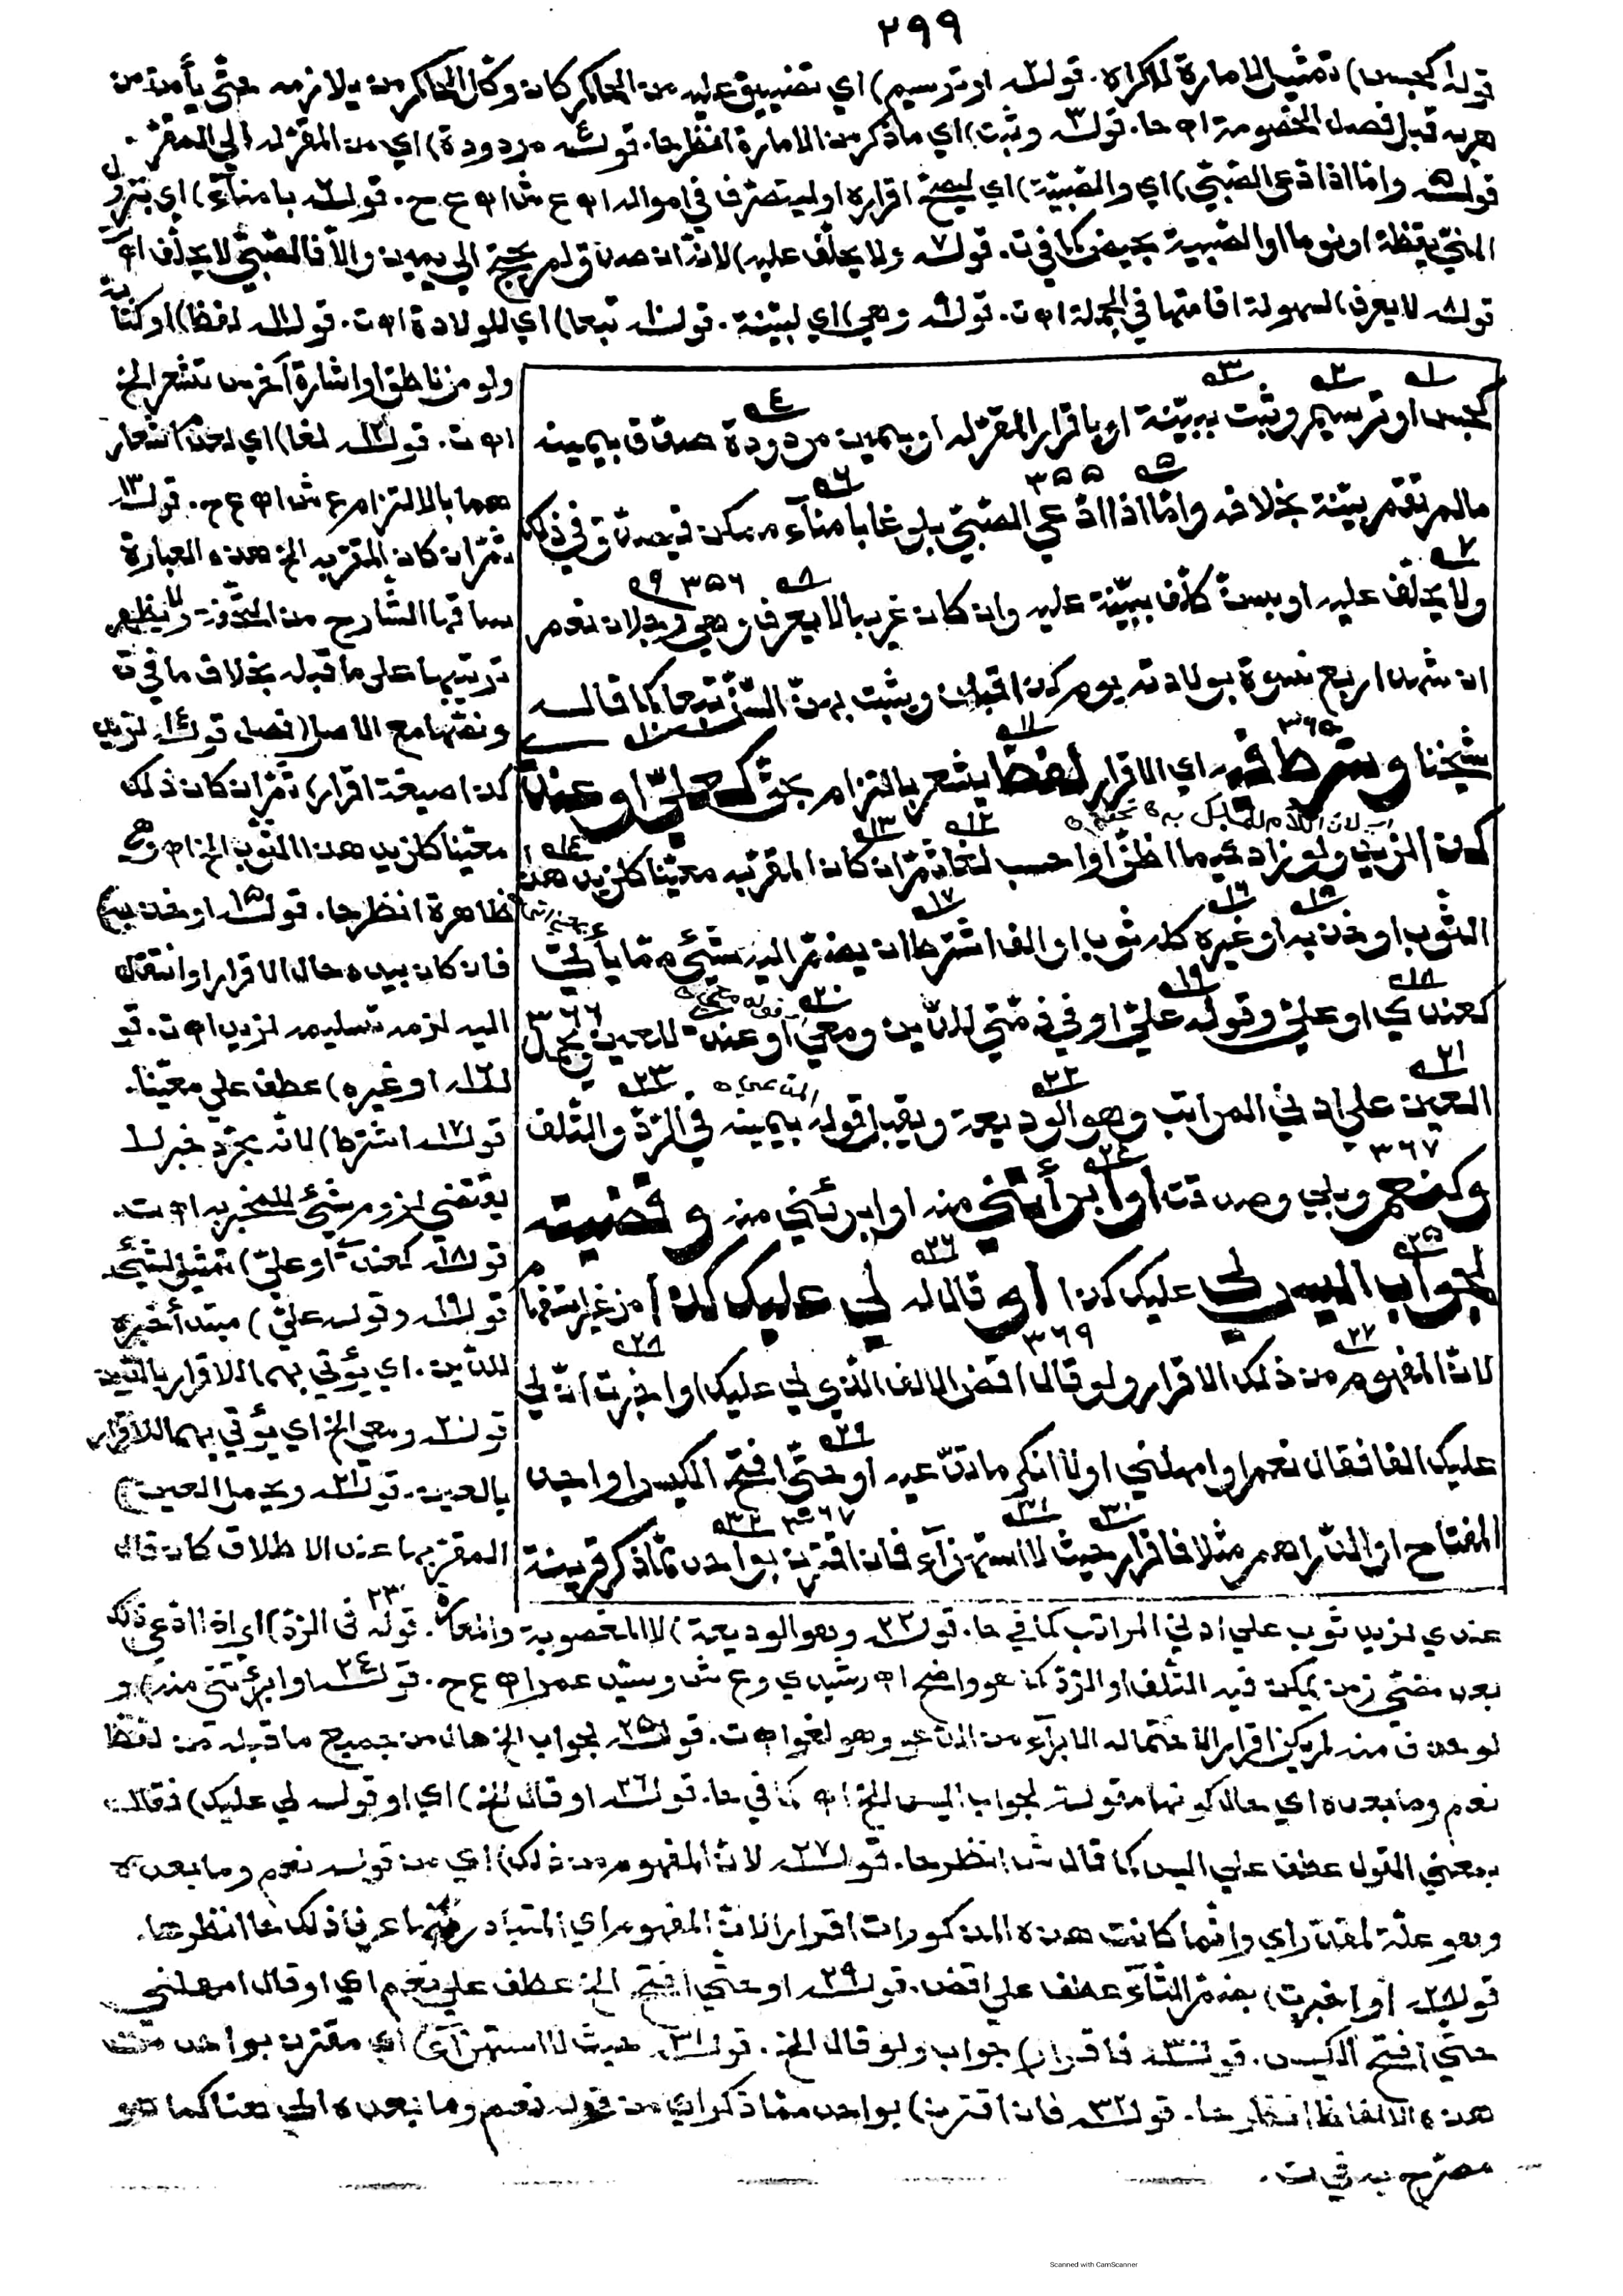 ٢٩٩
قوله كحبس) تمثيل لامارة الاكراه. قوله او ترسيم) اي تضييق عليه من الحاكم كان وكل الحاكم من يلازمه حتى يأمن من
هربه قبل فصل الخصومة اه حا. قوله٣ وثبت) اي ما ذكر من الامارة انظر حا. قوله٤ مردودة) اي من المقر له الى المقر.
قوله٥ وامّا اذا ادعى الصّبيّ) اي والصّبيّة) اي ليصحّ اقراره او ليتصرّف في امواله اه ع ش اه ع ح. قوله٦ بامناء) اي بنزول
المنيّ يقظة او نوما او الصّبية بحيض كما في ت. قوله٧ ولا يحلّف عليه) لانّه ان صدق لم يحتج الى يمين والّا فالصّبيّ لا يحلّف اه ت
قوله٨ لا يعرف) لسهولة اقامتها في الجملة اه ت. قوله٩ وهي) اي لبيّنة. قوله١٠ تبعا) اي للولادة اه ت. قوله١١ لفظ) او كتابة
ولو من ناطق او اشارة آخرس تشعر الخ
اه ت. قوله١٢ لغا) اي لعدم اشعار
هما بالالتزام ع ش اه ع ح. قوله١٣
ثمّ ان كان المقرّ به الخ هذه العبارة
ساقها الشّارح من التّحفة ولا يظهر
ترتيبها على ما قبله بخلاف ما في ت
ونصّها مع الاصل (فصل قوله١٤ لزيد
كذا صيغة اقرار) ثمّ ان كان ذلك
معيّنا كلزيد هذا الثّوب الخ اه وهي
ظاهرة انظر حا. قوله١٥ او خذ به)
فان كان بيده حال الاقرار او انتقل
اليه لزمه تسليمه لزيد اه ت. قو
له١٦ او غيره) عطف على معيّنا.
قوله١٧ اشترط) لانّه مجرّد خبر لا
يقتضي لزوم شئ للمخبر به اه ت.
قوله١٨ كعندي او عليّ) تمثيل لشئ
قوله١٩ وقوله عليّ) مبتدأ خبره
للدّين. اي يؤتي بهما للاقرار بالدّين
قوله٢٠ ومعي الخ اي يؤتي بهما للاقرار
بالعين. قوله٢١ ويحمل العين)
المقرّ بها عند الاطلاق كان قال
كحبس او ترسيم وثبت ببيّنة او باقرار المقرّ له او بيمين مردودة صدق بيمينه
ما لم تقم بيّنة بخلافه وامّا اذا ادّعى الصّبيّ بلوغا بامناء ممكن فيصدّق في ذلك
ولا يحلّف عليه او بسنّ كلّف ببيّنة عليه وان كان غريبا لا يعرف وهي رجلان نعم
ان شهد اربع نسوة بولادته يوم كذا قبلن ويثبت بهنّ السّنّ تبعا كما قاله
شيخنا وشرط فيه اي الاقرار لفظ يشعر بالتزام بحقّ كعليّ او عندي
كذا لزيد ولو زاد فيما اظنّ او احسب لغا ثمّ ان كان المقرّ به معيّنا كلزيد هذا
الثّوب او خذ به او غيره كله ثوب او الف اشترط ان يضمّ اليه شئ ممّا يأتي
كعندي او عليّ وقوله عليّ او في ذمّتي للدّين ومعي او عندي للعين ويحمل
العين على ادنى المراتب وهو الوديعة ويقبل قوله بيمينه في الرّدّ والتّلف
وكنعم وبلى وصدقت او ابرأتني منه او ابرئني منه وقضيته
لجواب اليس لي عليك كذا او قال له لي عليك كذا من غير استفهام
لانّ المفهوم من ذلك الاقرار ولو قال اقض الالف الّذي لي عليك او اخبرت انّ لي
عليك الفا فقال نعم او امهلني او لا انكر ما تدّعيه او حتّى افتح الكيس او اجد
المفتاح او الدّراهم مثلا فاقرار حيث لا استهزاء فان اقترن بواحد ممّا ذكر قرينة
عندي لزيد ثوب على ادنى المراتب كما في حا. قوله٢٢ وهو الوديعة) لا المغصوبة والمعارة. قوله٢٣ في الرّدّ) اي اذا ادّعى ذلك
بعد مضيّ زمن يمكن فيه التّلف او الرّدّ كذا هو واضح اه رشيدي وع ش وسيد عمر اه ع ح. قوله٢٤ او ابرأتني منه) و
لو حذف منه لم يكن اقرارا لاحتماله الابرآء من الدّعوى وهو لغو اه ت. قوله٢٥ لجواب الخ حال من جميع ما قبله من لفظ
نعم وما بعده اي حال كونها مقولة لجواب اليس الخ اه كما في حا. قوله٢٦ او قال الخ) اي او قوله لي عليك) فقال
بمعنى القول عطف على اليس كما قال ش انظر حا. قوله٢٧ لانّ المفهوم من ذلك) اي من قوله نعم وما بعده
وهو علّة لمقدّر اي وانّما كانت هذه المذكورات اقرارا لانّ المفهوم اي المتبادر منها عرفا ذلك حا انظرها.
قوله٢٨ او اخبرت) بضمّ التّاء عطف على اقض. قوله٢٩ او حتّى افتح الخ عطف على نعم اي او قال امهلني
حتّى افتح الكيس. قوله٣٠ فاقرار) جواب ولو قال الخ. قوله٣١ حيث لا استهزاء) اي مقترن بواحد من
هذه الالفاظ انظر حا. قوله٣٢ فان اقترن) بواحد ممّا ذكر اي من قوله نعم وما بعده الى هنا كما هو
مصرّح به في ت.
Scanned with CamScanner